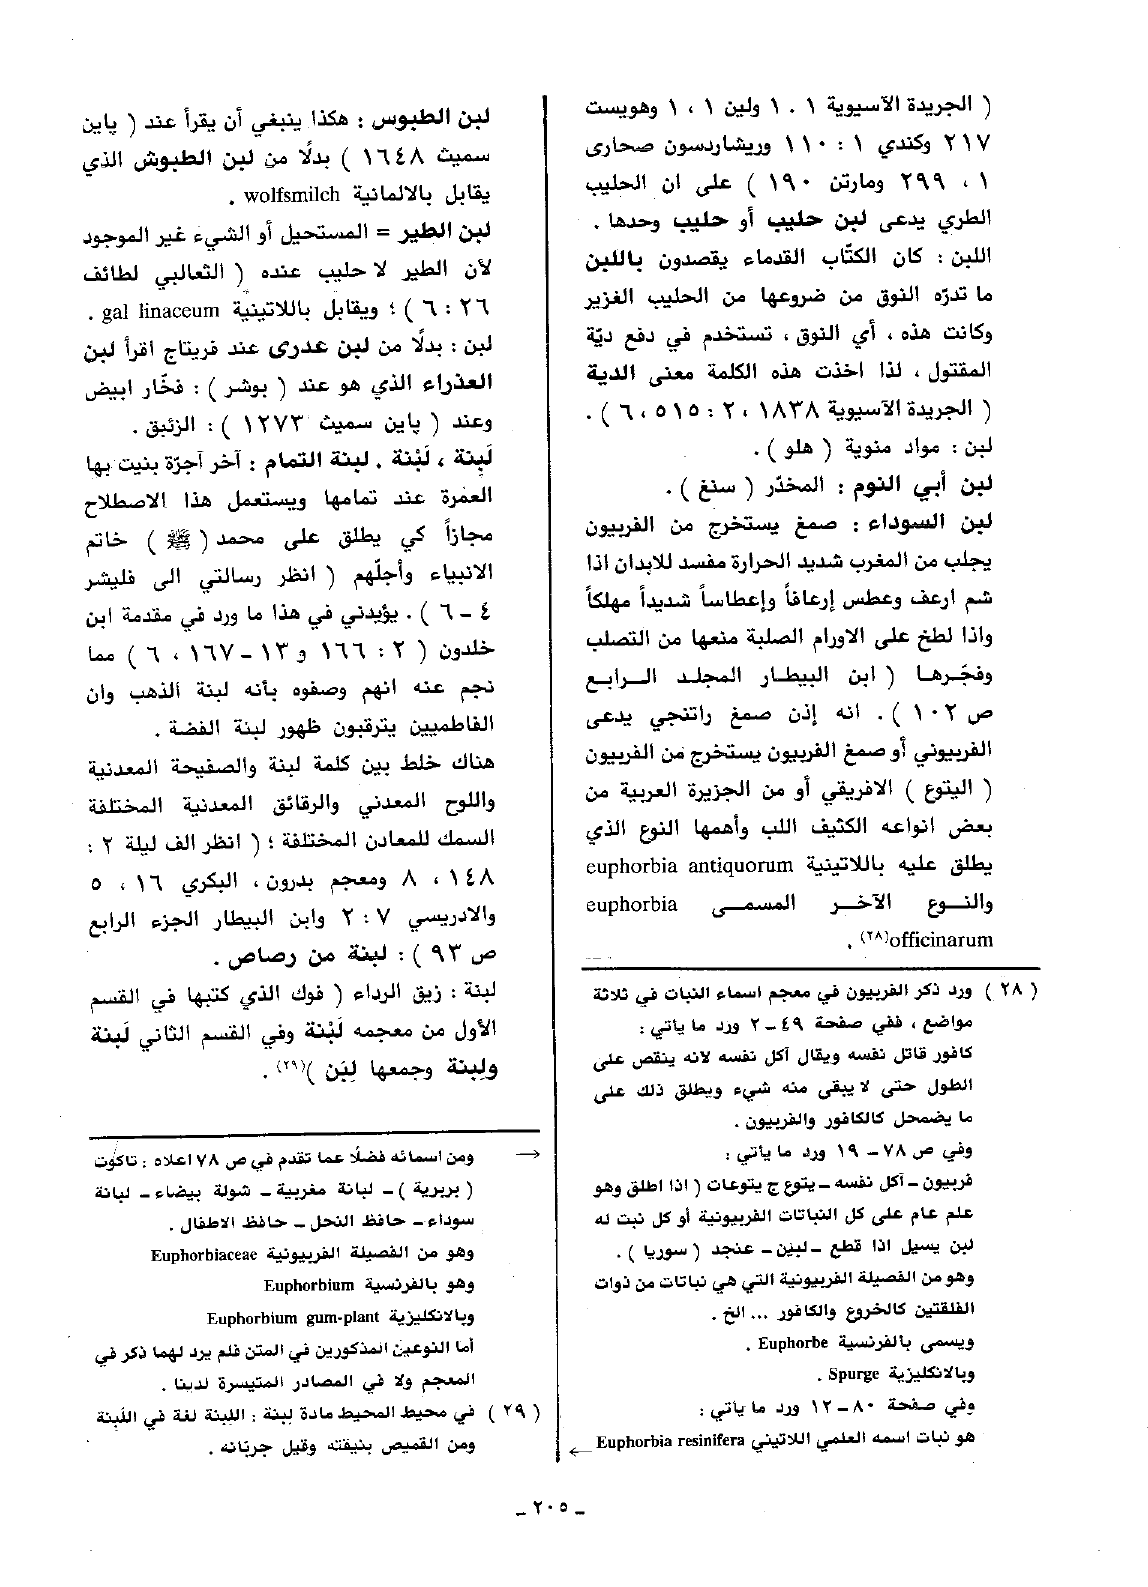 ( الجريدة الآسيوية ١ . ١ ولين ١ ، ١ وهويست
٢١٧ وكندي ١ : ١١٠ وريشاردسون صحارى
١ ، ٢٩٩ ومارتن ١٩٠ ) على ان الحليب
الطري يدعى لبن حليب أو حليب وحدها .
اللبن : كان الكتّاب القدماء يقصدون باللبن
ما تدرّه النوق من ضروعها من الحليب الغزير
وكانت هذه ، أي النوق ، تستخدم في دفع ديّة
المقتول ، لذا اخذت هذه الكلمة معنى الدية
( الجريدة الآسيوية ١٨٣٨ ، ٢ : ٥١٥ ، ٦ ) .
لبن : مواد منوية ( هلو ) .
لبن أبي النوم : المخدّر ( سنغ ) .
لبن السوداء : صمغ يستخرج من الفربيون
يجلب من المغرب شديد الحرارة مفسد للابدان اذا
شم ارعف وعطس إرعافاً وإعطاساً شديداً مهلكاً
واذا لطخ على الاورام الصلبة منعها من التصلب
وفجّرها ( ابن البيطار المجلد الرابع
ص ١٠٢ ) . انه إذن صمغ راتنجي يدعى
الفربيوني أو صمغ الفربيون يستخرج من الفربيون
( اليتوع ) الافريقي أو من الجزيرة العربية من
بعض انواعه الكثيف اللب وأهمها النوع الذي
يطلق عليه باللاتينية euphorbia antiquorum
والنوع الآخر المسمى euphorbia
officinarum(٢٨) .
( ٢٨ ) ورد ذكر الفربيون في معجم اسماء النبات في ثلاثة
مواضع ، ففي صفحة ٤٩ - ٢ ورد ما يأتي :
كافور قاتل نفسه ويقال آكل نفسه لانه ينقص على
الطول حتى لا يبقى منه شيء ويطلق ذلك على
ما يضمحل كالكافور والفربيون .
وفي ص ٧٨ - ١٩ ورد ما يأتي :
فربيون - آكل نفسه - يتوع ج يتوعات ( اذا اطلق وهو
علم عام على كل النباتات الفربيونية أو كل نبت له
لبن يسيل اذا قطع - لبين - عنجد ( سوريا ) .
وهو من الفصيلة الفربيونية التي هي نباتات من ذوات
الفلقتين كالخروع والكافور ... الخ .
ويسمى بالفرنسية Euphorbe .
وبالانكليزية Spurge .
وفي صفحة ٨٠ - ١٢ ورد ما يأتي :
هو نبات اسمه العلمي اللاتيني Euphorbia resinifera ←
لبن الطبوس : هكذا ينبغي أن يقرأ عند ( پاين
سميث ١٦٤٨ ) بدلًا من لبن الطبوش الذي
يقابل بالالمانية wolfsmilch .
لبن الطير = المستحيل أو الشيء غير الموجود
لأن الطير لا حليب عنده ( الثعالبي لطائف
٢٦ : ٦ ) ؛ ويقابل باللاتينية gal linaceum .
لبن : بدلًا من لبن عدرى عند فريتاج اقرأ لبن
العذراء الذي هو عند ( بوشر ) : فخّار ابيض
وعند ( پاين سميث ١٢٧٣ ) : الزئبق .
لَبِنة ، لَبْنة . لبنة التمام : آخر آجرّة بنيت بها
العمرة عند تمامها ويستعمل هذا الاصطلاح
مجازاً كي يطلق على محمد ( ﷺ ) خاتم
الانبياء وأجلّهم ( انظر رسالتي الى فليشر
٤ - ٦ ) . يؤيدني في هذا ما ورد في مقدمة ابن
خلدون ( ٢ : ١٦٦ و ١٣ - ١٦٧ ، ٦ ) مما
نجم عنه انهم وصفوه بأنه لبنة الذهب وان
الفاطميين يترقبون ظهور لبنة الفضة .
هناك خلط بين كلمة لبنة والصفيحة المعدنية
واللوح المعدني والرقائق المعدنية المختلفة
السمك للمعادن المختلفة ؛ ( انظر الف ليلة ٢ :
١٤٨ ، ٨ ومعجم بدرون ، البكري ١٦ ، ٥
والادريسي ٧ : ٢ وابن البيطار الجزء الرابع
ص ٩٣ ) : لبنة من رصاص .
لبنة : زيق الرداء ( فوك الذي كتبها في القسم
الأول من معجمه لَبْنة وفي القسم الثاني لَبنة
ولِبنة وجمعها لِبَن )(٢٩) .
→ ومن اسمائه فضلًا عما تقدم في ص ٧٨ اعلاه : تاكوت
( بربرية ) - لبانة مغربية - شولة بيضاء - لبانة
سوداء - حافظ النحل - حافظ الاطفال .
وهو من الفصيلة الفربيونية Euphorbiaceae
وهو بالفرنسية Euphorbium
وبالانكليزية Euphorbium gum-plant
أما النوعين المذكورين في المتن فلم يرد لهما ذكر في
المعجم ولا في المصادر المتيسرة لدينا .
( ٢٩ ) في محيط المحيط مادة لبنة : اللبنة لغة في اللَبنة
ومن القميص بنيقته وقيل جربّانه .
- ٢٠٥ -